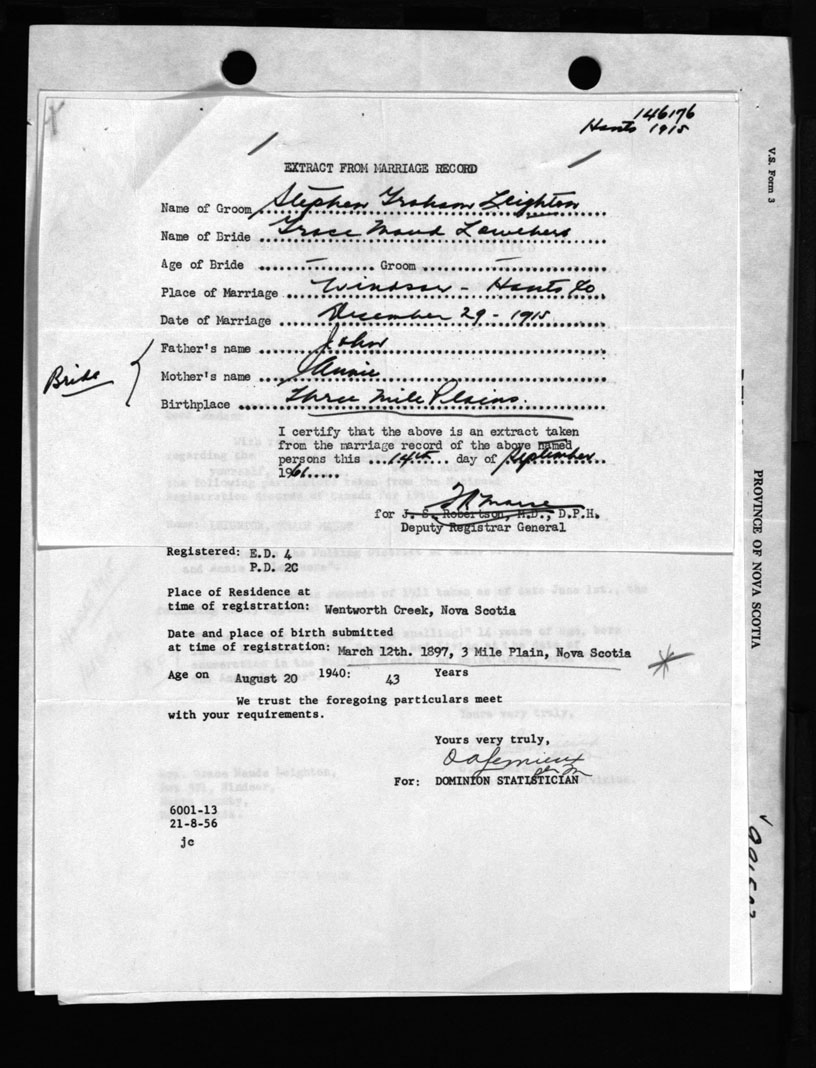 146176
Hants 1915
EXTRACT FROM MARRIAGE RECORD
Name of Groom Stephen Graham Leighton
Name of Bride Grace Maud
Age of Bride ........—........ Groom ........—........
Place of Marriage Windsor - Hants Co.
Date of Marriage December 29 - 1915
Father's name John
Bride
Mother's name Annie
Birthplace Three Mile Plains.
I certify that the above is an extract taken
from the marriage record of the above named
persons this ...14th... day of September
1961......
for J. S. Robertson, M.D., D.P.H.
Deputy Registrar General
Registered: E.D. 4
P.D. 2C
Place of Residence at
time of registration: Wentworth Creek, Nova Scotia
Date and place of birth submitted
at time of registration: March 12th. 1897, 3 Mile Plain, Nova Scotia
Age on August 20 1940: 43 Years
We trust the foregoing particulars meet
with your requirements.
Yours very truly,
For: DOMINION STATISTICIAN
6001-13
21-8-56
jc
V.S. Form 3
PROVINCE OF NOVA SCOTIA